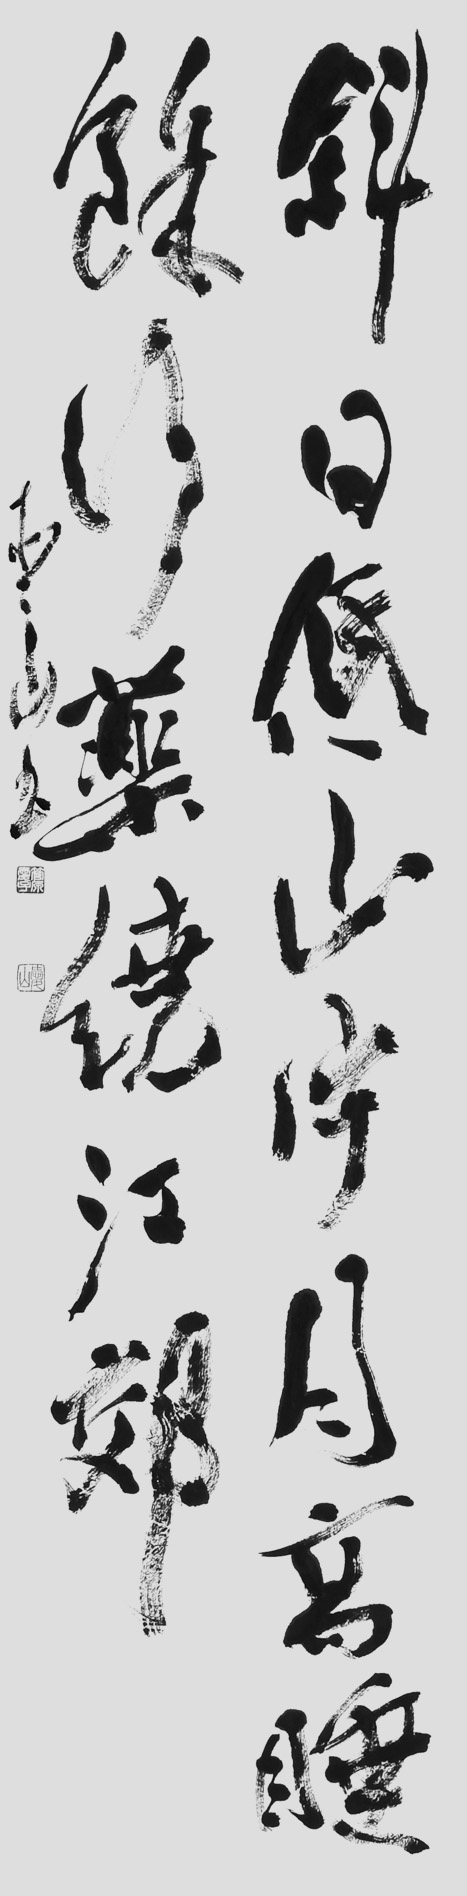 斜日低山片月高睡
餘行藥繞江郊
山